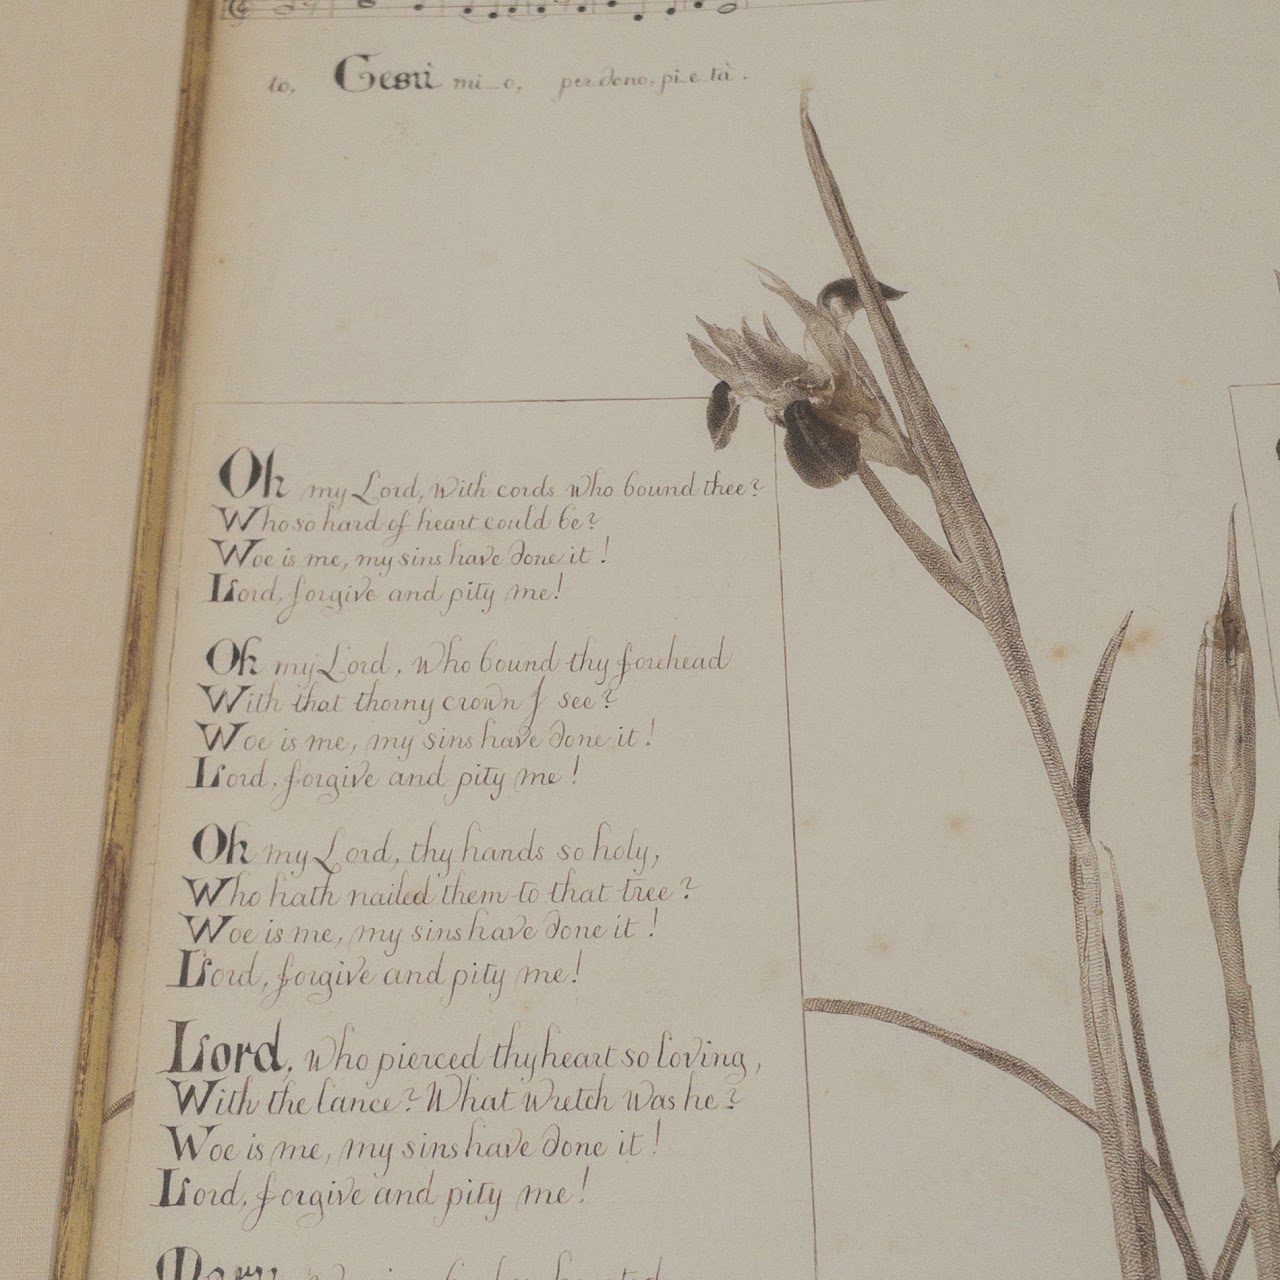 to, Gesù mi_o, perdono, pi_e_tà.
Oh my Lord, with cords who bound thee?
Who so hard of heart could be?
Woe is me, my sins have done it!
Lord, forgive and pity me!
Oh my Lord, who bound thy forehead
With that thorny crown I see?
Woe is me, my sins have done it!
Lord, forgive and pity me!
Oh my Lord, thy hands so holy,
Who hath nailed them to that tree?
Woe is me, my sins have done it!
Lord, forgive and pity me!
Lord, who pierced thy heart so loving,
With the lance? What wretch was he?
Woe is me, my sins have done it!
Lord, forgive and pity me!
Mary